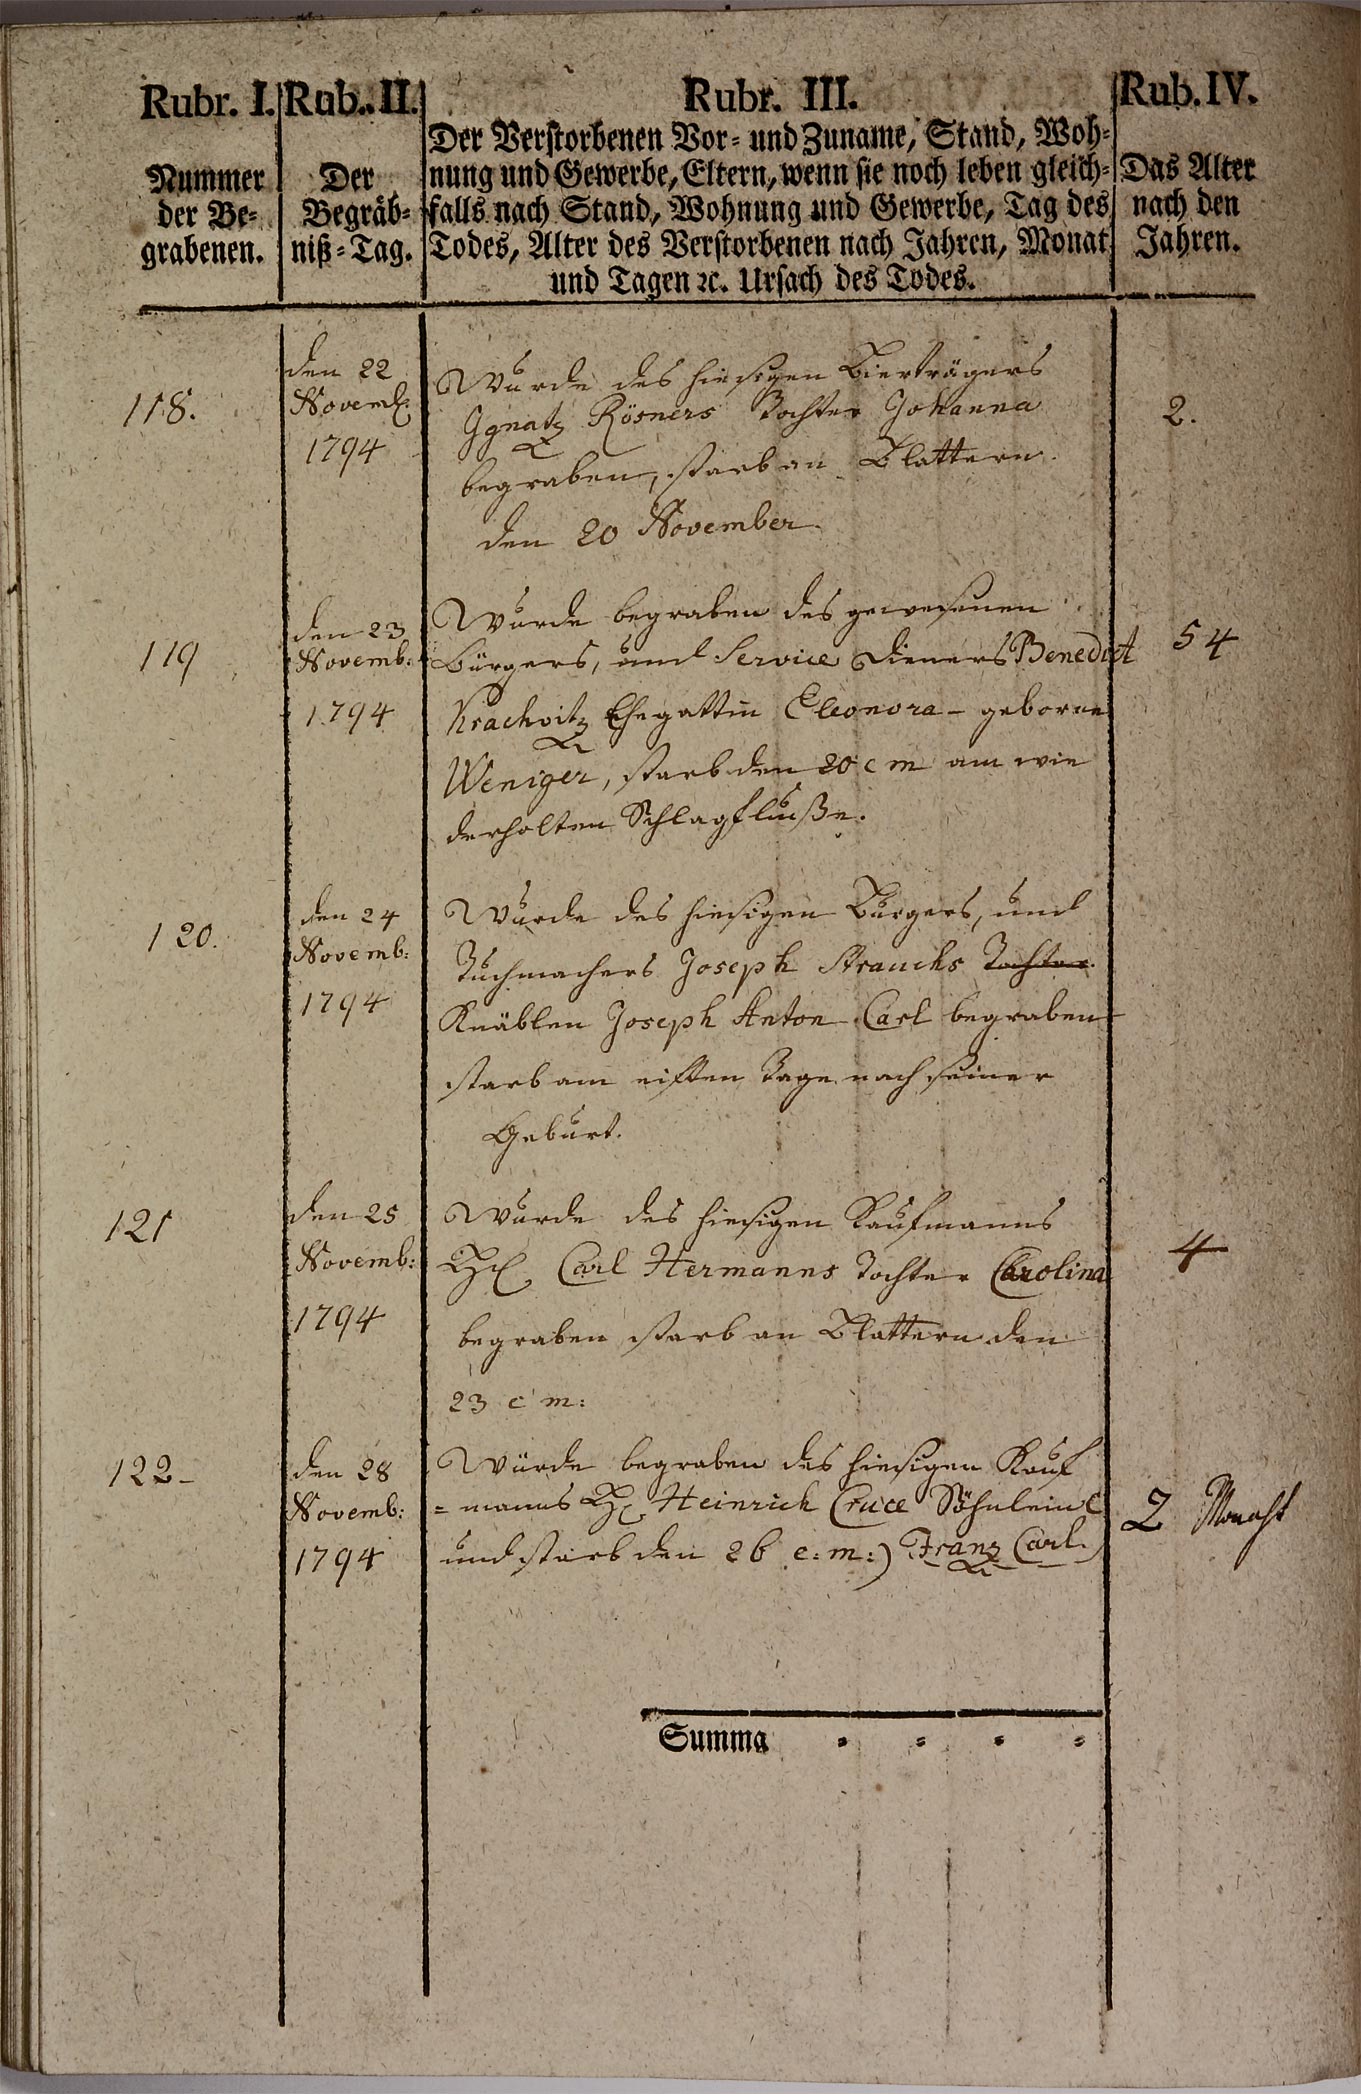 Rubr. I. Rub. II. Rubr. III. Rub. IV.
Nummer der Be-
grabenen.
Der
Begräb-
niß-Tag.
Der Verstorbenen Vor- und Zuname, Stand, Woh-
nung und Gewerbe, Eltern, wenn sie noch leben gleich-
falls nach Stand, Wohnung und Gewerbe, Tag des
Todes, Alter des Verstorbenen nach Jahren, Monat
und Tagen ꝛc. Ursach des Todes.
Das Alter
nach den
Jahren.
118.
den 22
Novemb:
1794
Wurde des hiesigen Bierträgers
Ignatz Rösners Tochter Johanna
begraben, starb an Blattern
den 20 November
2.
119
den 23
Novemb:
1794
Wurde begraben des gewesenen
Bürgers, und Service Dieners Benedict
Krachvitz Ehegattin Eleonora geborne
Weniger, starb den 20 c m am wie
derholten Schlagfluße.
54
120.
den 24
Novemb:
1794
Wurde des hiesigen Burgers, und
Tuchmachers Joseph Strauchs Tochter
Knäblen Joseph Anton Carl begraben
starb am eilften Tage nach seiner
Geburt.
121
den 25
Novemb:
1794
Wurde des hiesigen Kaufmanns
H. Carl Hermanns Tochter Carolina
begraben starb an Blattern den
23 c m:
4
122
den 28
Novemb:
1794
Würde begraben des hiesigen Kauf
= manns H. Heinrich Cruce Söhnlein (
und starb den 26 c: m:) Franz Carl.
2 Monath
Summa